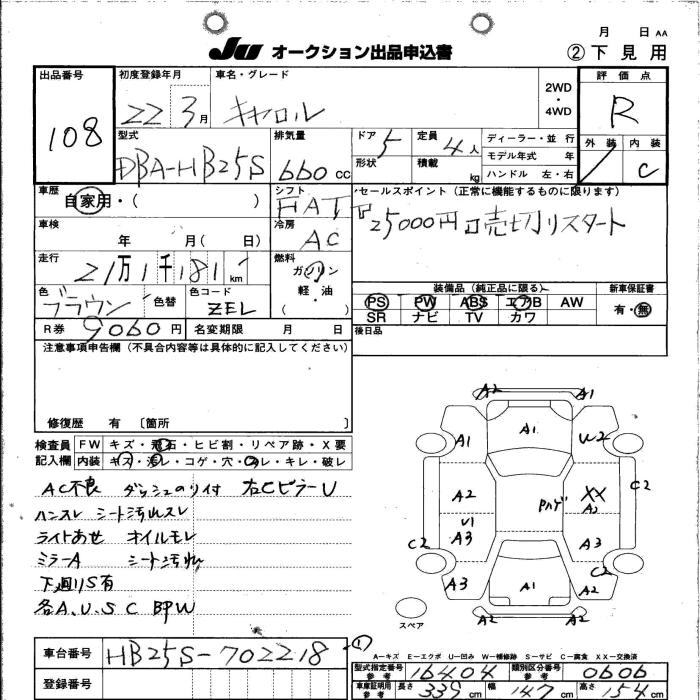 月 日 AA
JU オークション出品申込書
②下見用
出品番号
108
初度登録年月
22 3月
車名・グレード
キャロル
2WD
・
4WD
評価点
R
外装 内装
C
型式
DBA-HB25S
排気量
660 cc
ドア 5
形状
定員 4人
積載 kg
ディーラー・並行
モデル年式 年
ハンドル 左・右
車歴
自家用・( )
シフト
FAT
セールスポイント（正常に機能するものに限ります）
25000円 売切リスタート
車検
年 月( 日)
冷房
AC
走行
21万1千181 km
燃料
ガソリン
軽・油
( )
色
ブラウン
色替
色コード
ZEL
装備品（純正品に限る）
PS PW ABS エアB AW
SR ナビ TV カワ
新車保証書
有・無
R券 9060円
名変期限 月 日
後日品
注意事項申告欄（不具合内容等は具体的に記入してください）
修復歴 有 〔箇所 〕
検査員
記入欄
FW キズ・飛石・ヒビ割・リペア跡・X要
内装 キズ・汚レ・コゲ・穴・スレ・キレ・破レ
AC不良 ダッシュのり付 右CピラーU
ハンスレ シート汚れスレ
ライトあせ オイルモレ
ミラーA シート汚れ
下廻りS有
各A.U.S C BPW
A2 A1
A1 A1 W2
A2 PハゲXX A2 C2
U1
A3 A3
C2 C2
A3 A1 A2
A2 A2
スペア
車台番号 HB25S-702218
登録番号
A－キズ E－エクボ U－凹み W－補修跡 S－サビ C－腐食 XX－交換済
型式指定番号 参考 16404
類別区分番号 参考 0606
車庫証明用 参考 長さ 339 cm 幅 147 cm 高さ 154 cm